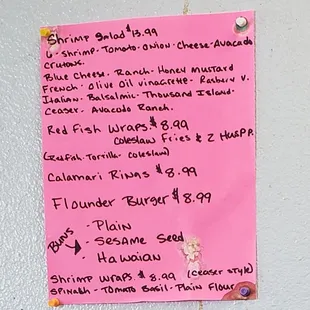 Shrimp Salad $13.99
6 - Shrimp - Tomato - Onion - Cheese - Avacado
Crutons.
Blue Cheese. Ranch - Honey Mustard
French - Olive Oil Vinagrette - Rasbery V.
Italian - Balsalmic - Thousand Island -
Ceaser - Avacado Ranch.
Red Fish Wraps. $8.99
Coleslaw Fries & 2 Husp P.
(Redfish - Torrilla - Coleslaw)
Calamari Rings $8.99
Flounder Burger $8.99
Buns
- Plain
- Sesame Seed
- Hawaian
Shrimp Wraps. $8.99 (Ceaser Style)
Spinash - Tomato Basil - Plain Flour